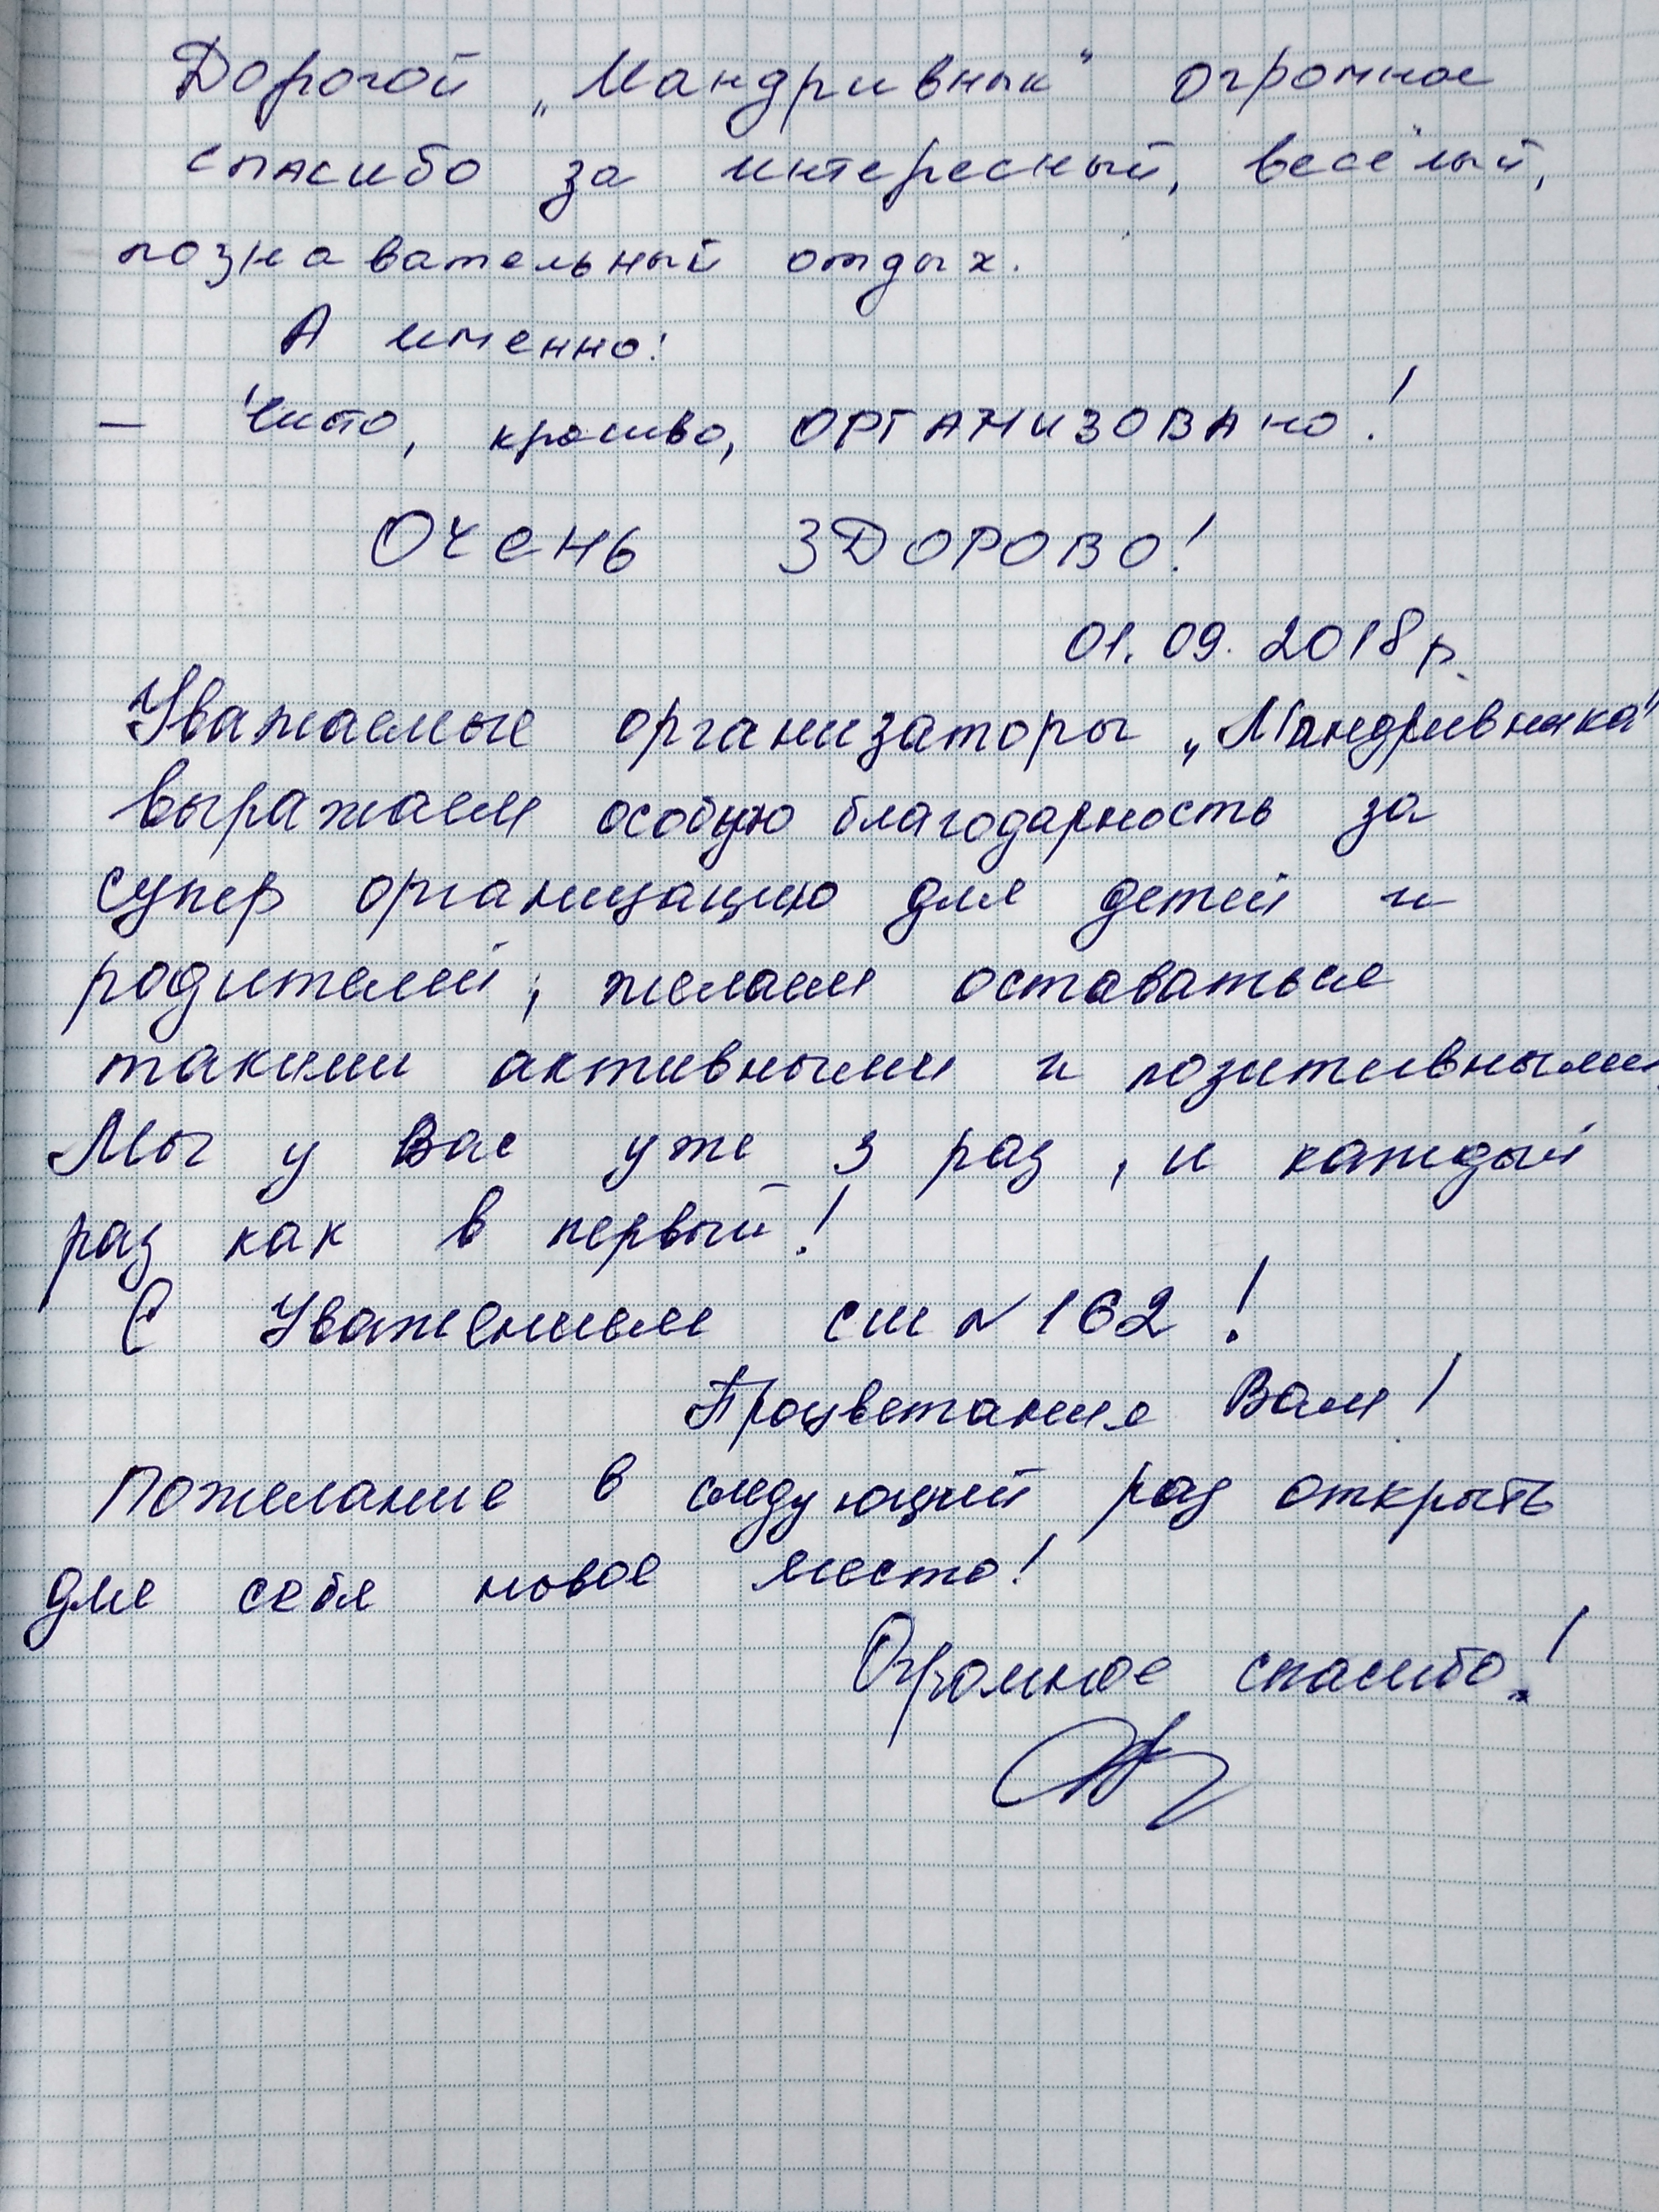 Дорогой „Мандривнык" огромное
спасибо за интересный, весёлый,
познавательный отдых.
А именно:
– Чисто, красиво, ОРГАНИЗОВАНО!
ОЧЕНЬ ЗДОРОВО!
01.09.2018р.
Уважаемые организаторы „Мандривныка"
выражаем особую благодарность за
супер организацию для детей и
родителей, желаем оставаться
такими активными и позитивными.
Мы у Вас уже 3 раз, и каждый
раз как в первый!
С Уважением сш №162!
Процветания Вам!
Пожелание в следующий раз открыть
для себя новое место!
Огромное спасибо!